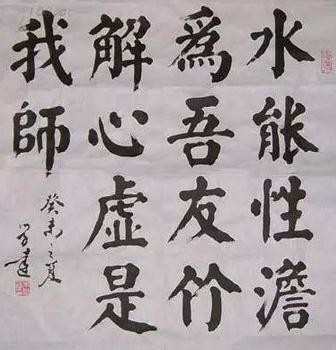 水能性澹
爲吾友竹
解心虛是
我師
癸未之夏